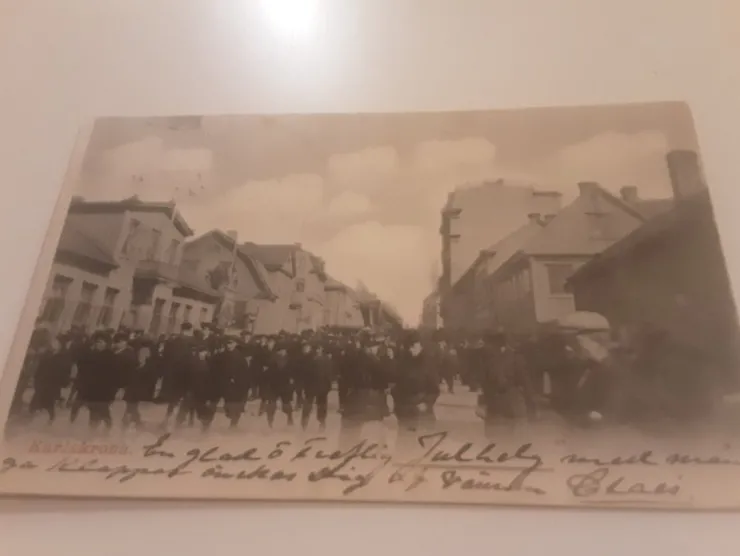 Karlskrona.
En glad ö treflig Julhelg med mån
ga Klappar önskas Dig af vännen Claes